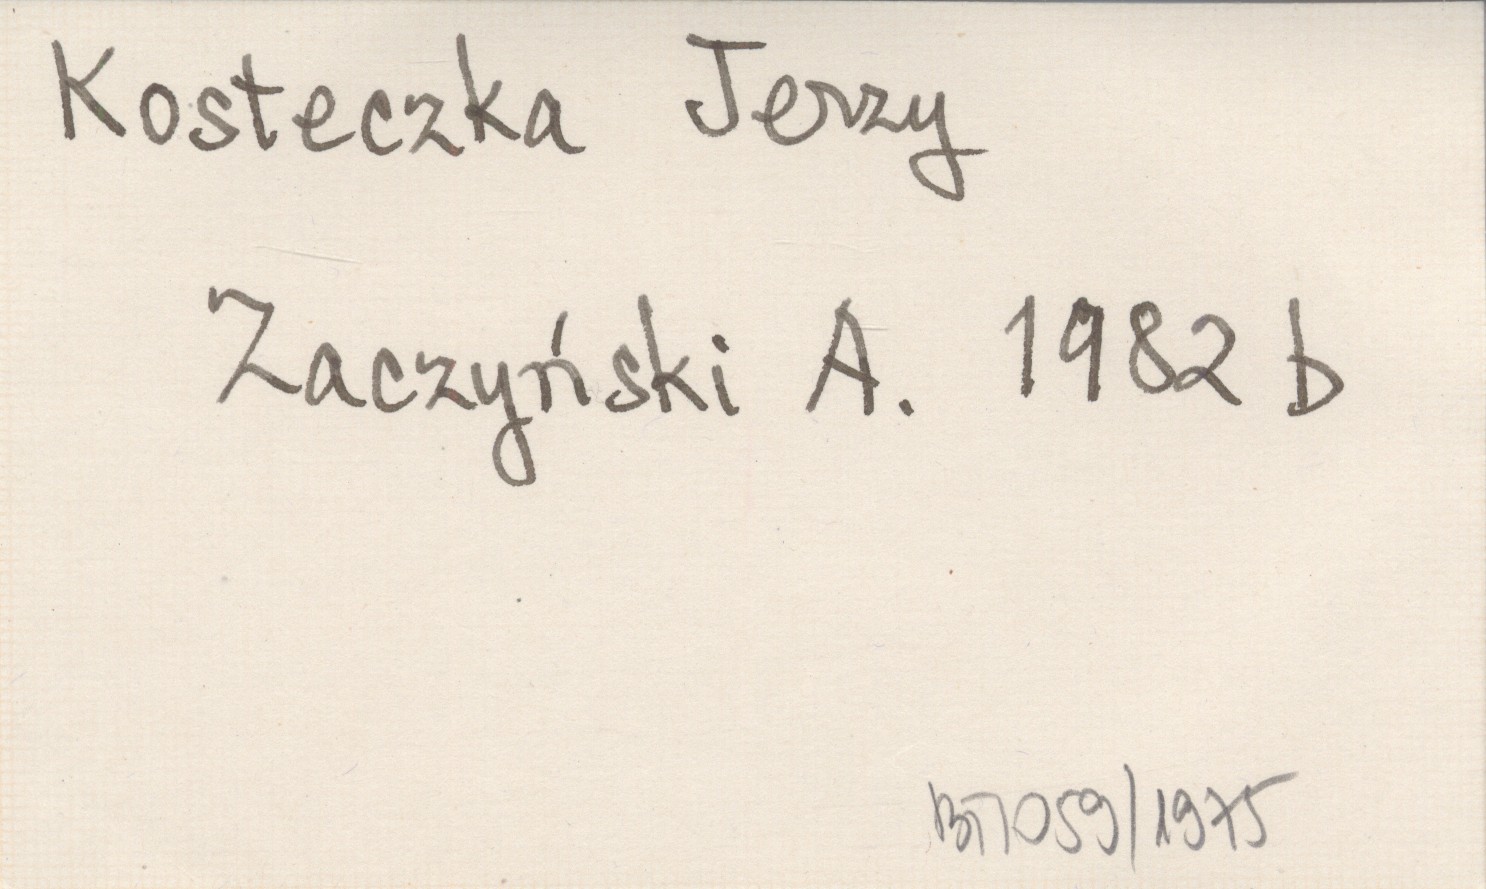 Kosteczka Jerzy
Zaczyński A. 1982 b
059/1975